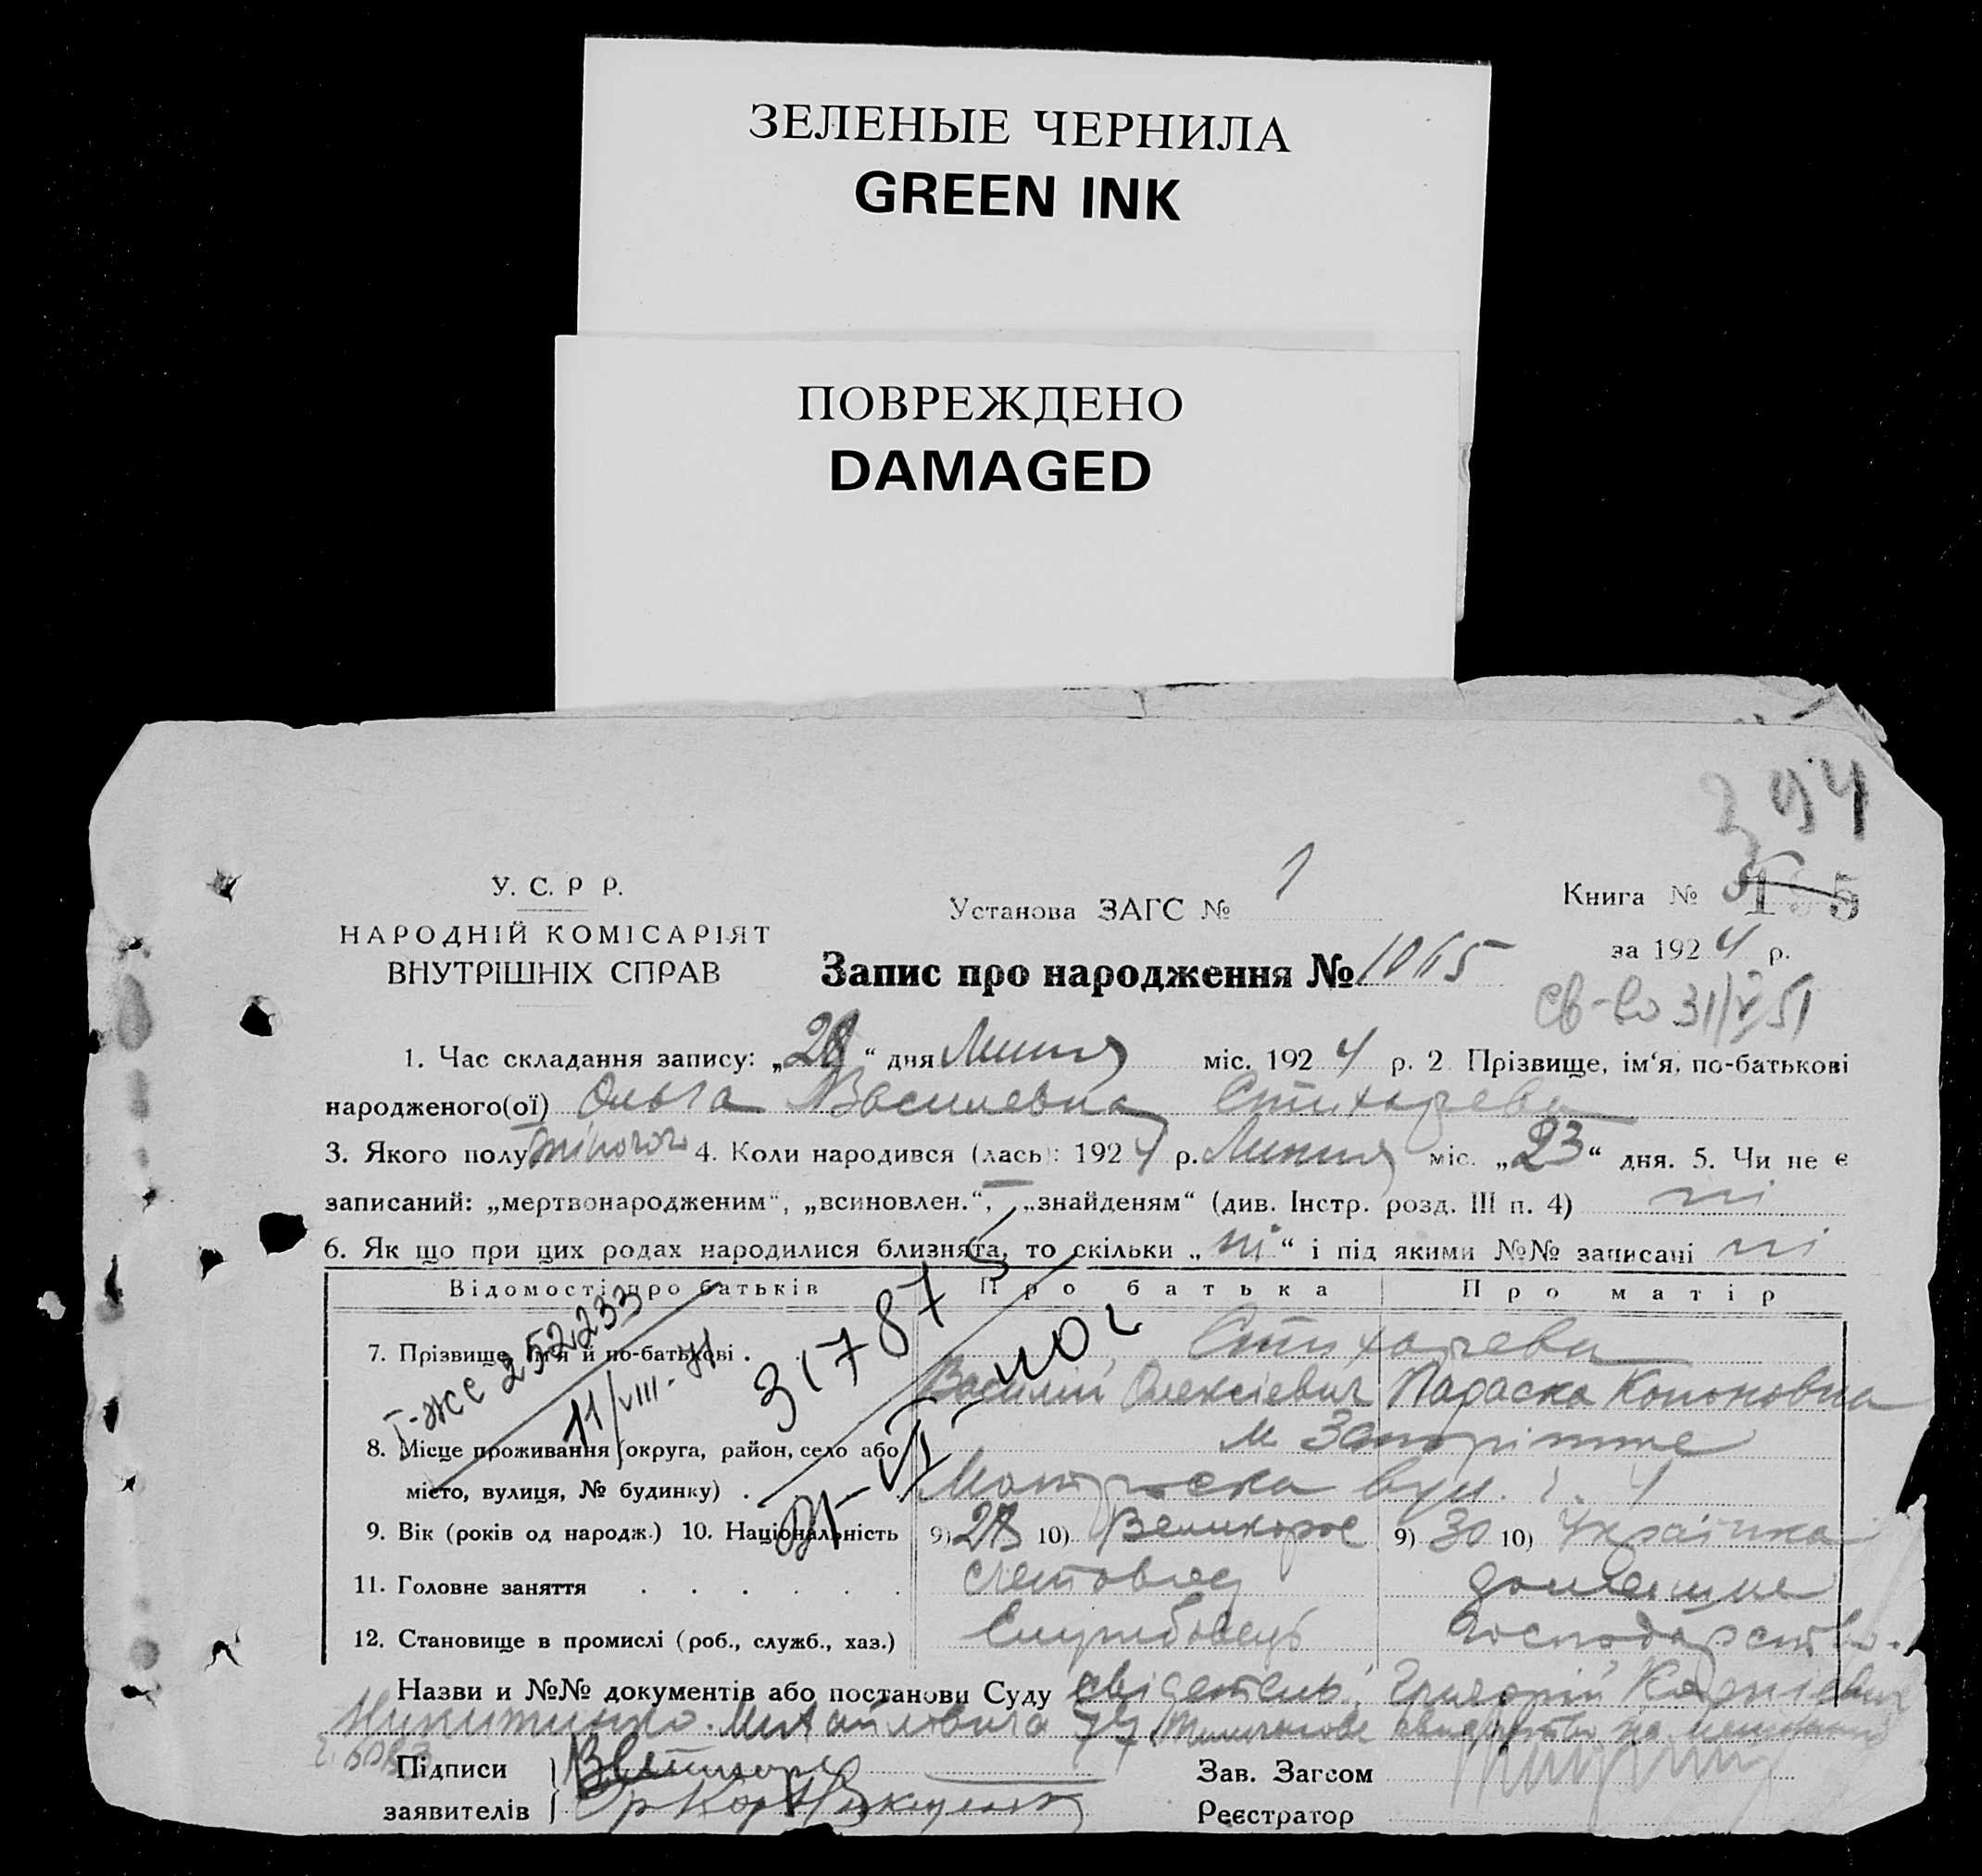 ЗЕЛЕНЫЕ ЧЕРНИЛА
GREEN INK
ПОВРЕЖДЕНО
DAMAGED
394
У. С. Р Р.
НАРОДНІЙ КОМІСАРІЯТ
ВНУТРІШНІХ СПРАВ
Установа ЗАГС № 1
Книга №
за 1924 р.
Запис про народження № 1065
св-во 31/V 51
1. Час складання запису: „28“ дня Липня міс. 1924 р. 2 Прізвище, ім‘я, по-батькові
народженого(ої) Ольга Василевна Стихарева
3. Якого полу жіночого 4. Коли народився (лась): 1924 р. Липня міс. „23“ дня. 5. Чи не є
записаний: „мертвонародженим“, „всиновлен.“, „знайденям“ (див. Інстр. розд. III п. 4) ні
6. Як що при цих родах народилися близнята, то скільки „ні“ і під якими №№ записані ні
Відомості про батьків Про батька Про матір
7. Прізвище, ім‘я й по-батькові . Стихареви
Василій Олексієвич Параска Кононовна
І-же 252233
11/VIII-41
31787
8. Місце проживання (округа, район, село або м Запоріжже
місто, вулиця, № будинку) . вул. ч. 4
9. Вік (років од народж.) 10. Національність 9) 28 10) Великорос 9) 30 10) Українка
11. Головне заняття . . . . . . счетовод домашне
12. Становище в промислі (роб., служб., хаз.) Службовець господарство.
Назви и №№ документів або постанови Суду свідетель: Григорій
Підписи
заявителів
Зав. Загсом
Реєстратор